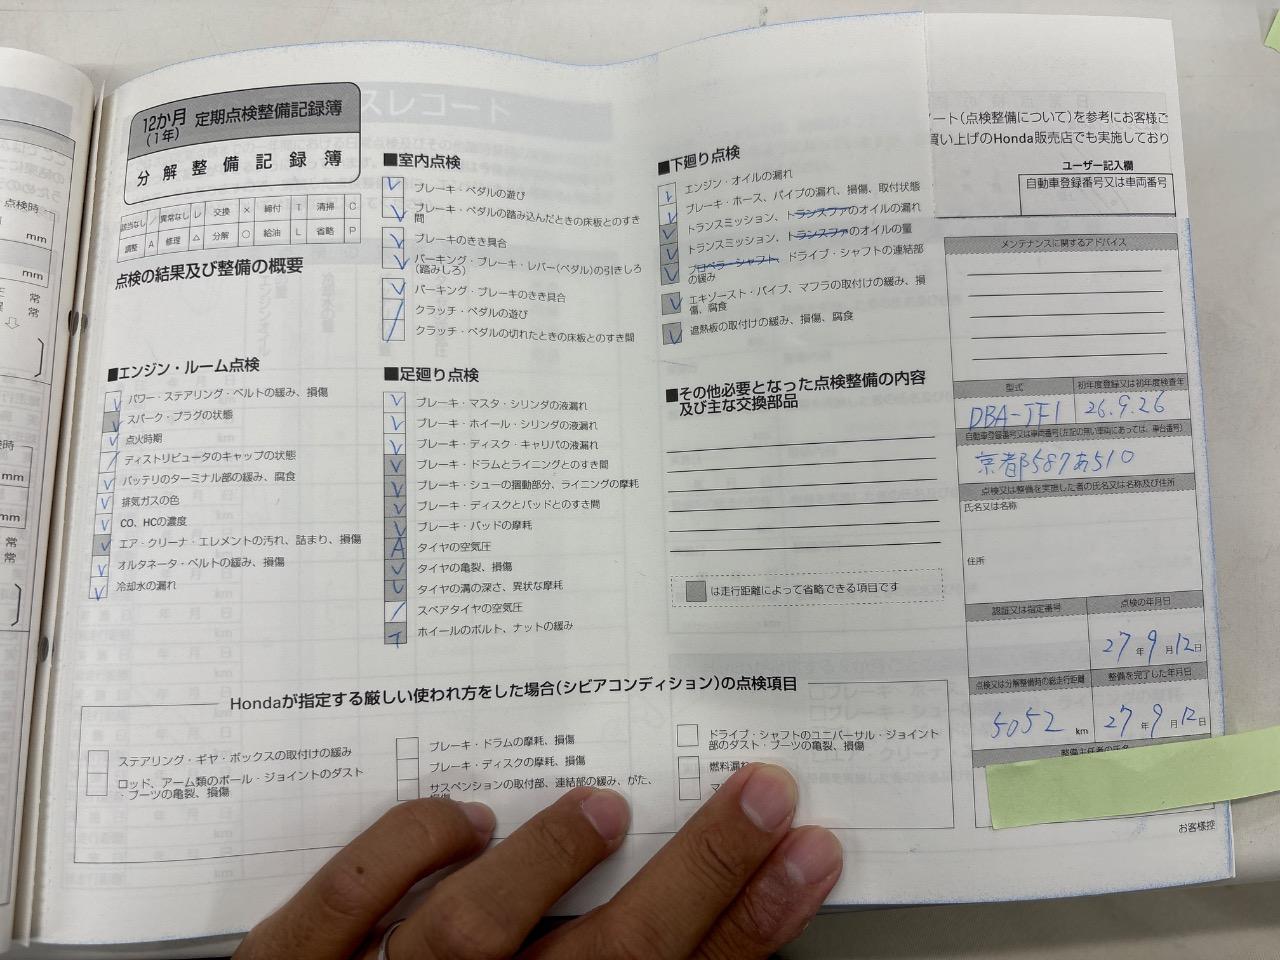 12か月
(1年)
定期点検整備記録簿
分解整備記録簿
該当なし / 異常なし レ 交換 × 締付 T 清掃 C
調整 A 修理 △ 分解 ○ 給油 L 省略 P
点検の結果及び整備の概要
■エンジン・ルーム点検
パワー・ステアリング・ベルトの緩み、損傷
スパーク・プラグの状態
点火時期
ディストリビュータのキャップの状態
バッテリのターミナル部の緩み、腐食
排気ガスの色
CO、HCの濃度
エア・クリーナ・エレメントの汚れ、詰まり、損傷
オルタネータ・ベルトの緩み、損傷
冷却水の漏れ
■室内点検
ブレーキ・ペダルの遊び
ブレーキ・ペダルの踏み込んだときの床板とのすき
間
ブレーキのきき具合
パーキング・ブレーキ・レバー(ペダル)の引きしろ
(踏みしろ)
パーキング・ブレーキのきき具合
クラッチ・ペダルの遊び
クラッチ・ペダルの切れたときの床板とのすき間
■足廻り点検
ブレーキ・マスタ・シリンダの液漏れ
ブレーキ・ホイール・シリンダの液漏れ
ブレーキ・ディスク・キャリパの液漏れ
ブレーキ・ドラムとライニングとのすき間
ブレーキ・シューの摺動部分、ライニングの摩耗
ブレーキ・ディスクとパッドとのすき間
ブレーキ・パッドの摩耗
A タイヤの空気圧
タイヤの亀裂、損傷
タイヤの溝の深さ、異状な摩耗
スペアタイヤの空気圧
T ホイールのボルト、ナットの緩み
■下廻り点検
エンジン・オイルの漏れ
ブレーキ・ホース、パイプの漏れ、損傷、取付状態
トランスミッション、トランスファのオイルの漏れ
トランスミッション、トランスファのオイルの量
プロペラ・シャフト、ドライブ・シャフトの連結部
の緩み
エキゾースト・パイプ、マフラの取付けの緩み、損
傷、腐食
遮熱板の取付けの緩み、損傷、腐食
■その他必要となった点検整備の内容
及び主な交換部品
は走行距離によって省略できる項目です
ート(点検整備について)を参考にお客様ご
買い上げのHonda販売店でも実施しており
ユーザー記入欄
自動車登録番号又は車両番号
メンテナンスに関するアドバイス
型式
初年度登録又は初年度検査年
DBA-JF1
26.9.26
自動車登録番号又は車両番号(左記の無い車両にあっては、車台番号)
京都587あ510
点検又は整備を実施した者の氏名又は名称及び住所
氏名又は名称
住所
認証又は指定番号
点検の年月日
27年9月12日
点検又は分解整備時の総走行距離
整備を完了した年月日
5052 km
27年9月12日
お客様控
Hondaが指定する厳しい使われ方をした場合(シビアコンディション)の点検項目
ステアリング・ギヤ・ボックスの取付けの緩み
ロッド、アーム類のボール・ジョイントのダスト
・ブーツの亀裂、損傷
ブレーキ・ドラムの摩耗、損傷
ブレーキ・ディスクの摩耗、損傷
サスペンションの取付部、連結部の緩み、がた、
ドライブ・シャフトのユニバーサル・ジョイント
部のダスト・ブーツの亀裂、損傷
燃料漏れ
点検時
mm
mm
常
常
mm
mm
常
常